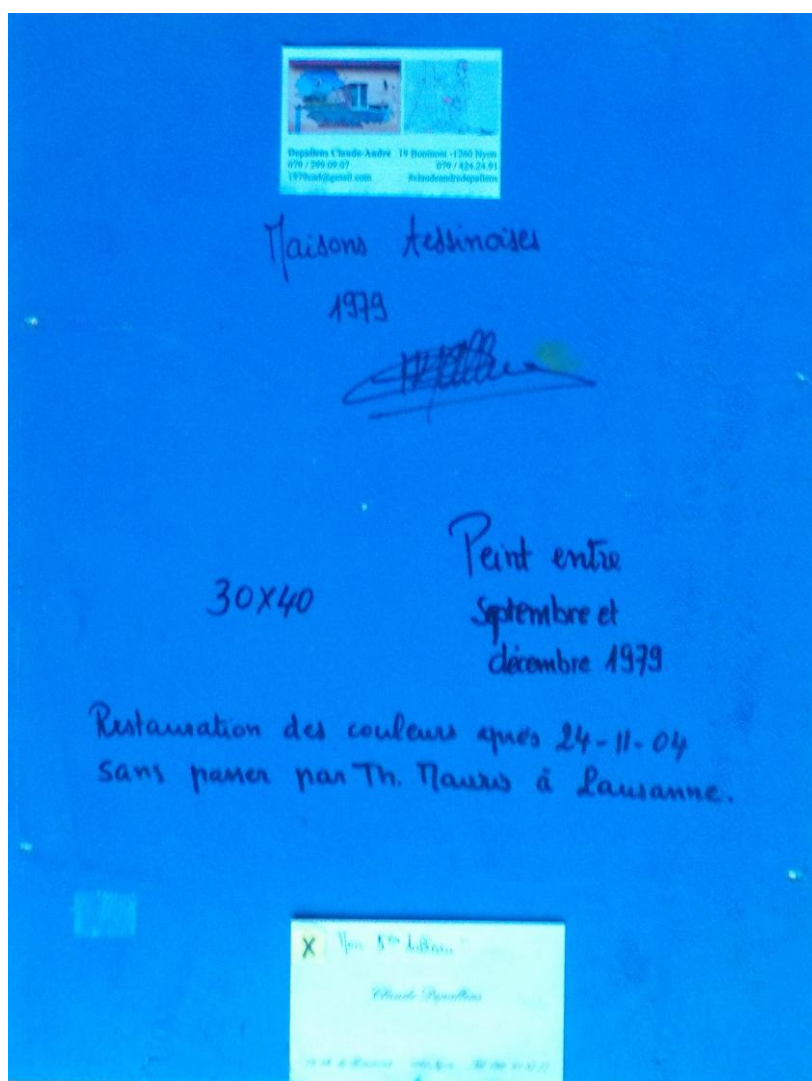 Depallens Claude-André 19 Bonmont -1260 Nyon
079 / 299.09.07 079 / 424.24.91
1979cad@gmail.com #claudeandredepallens
Maisons tessinoises
1979
30X40
Peint entre
Septembre et
décembre 1979
Restauration des couleurs après 24-11-04
sans passer par Th. Mauris à Lausanne.
X Mon 5ème tableau
Claude Depallens